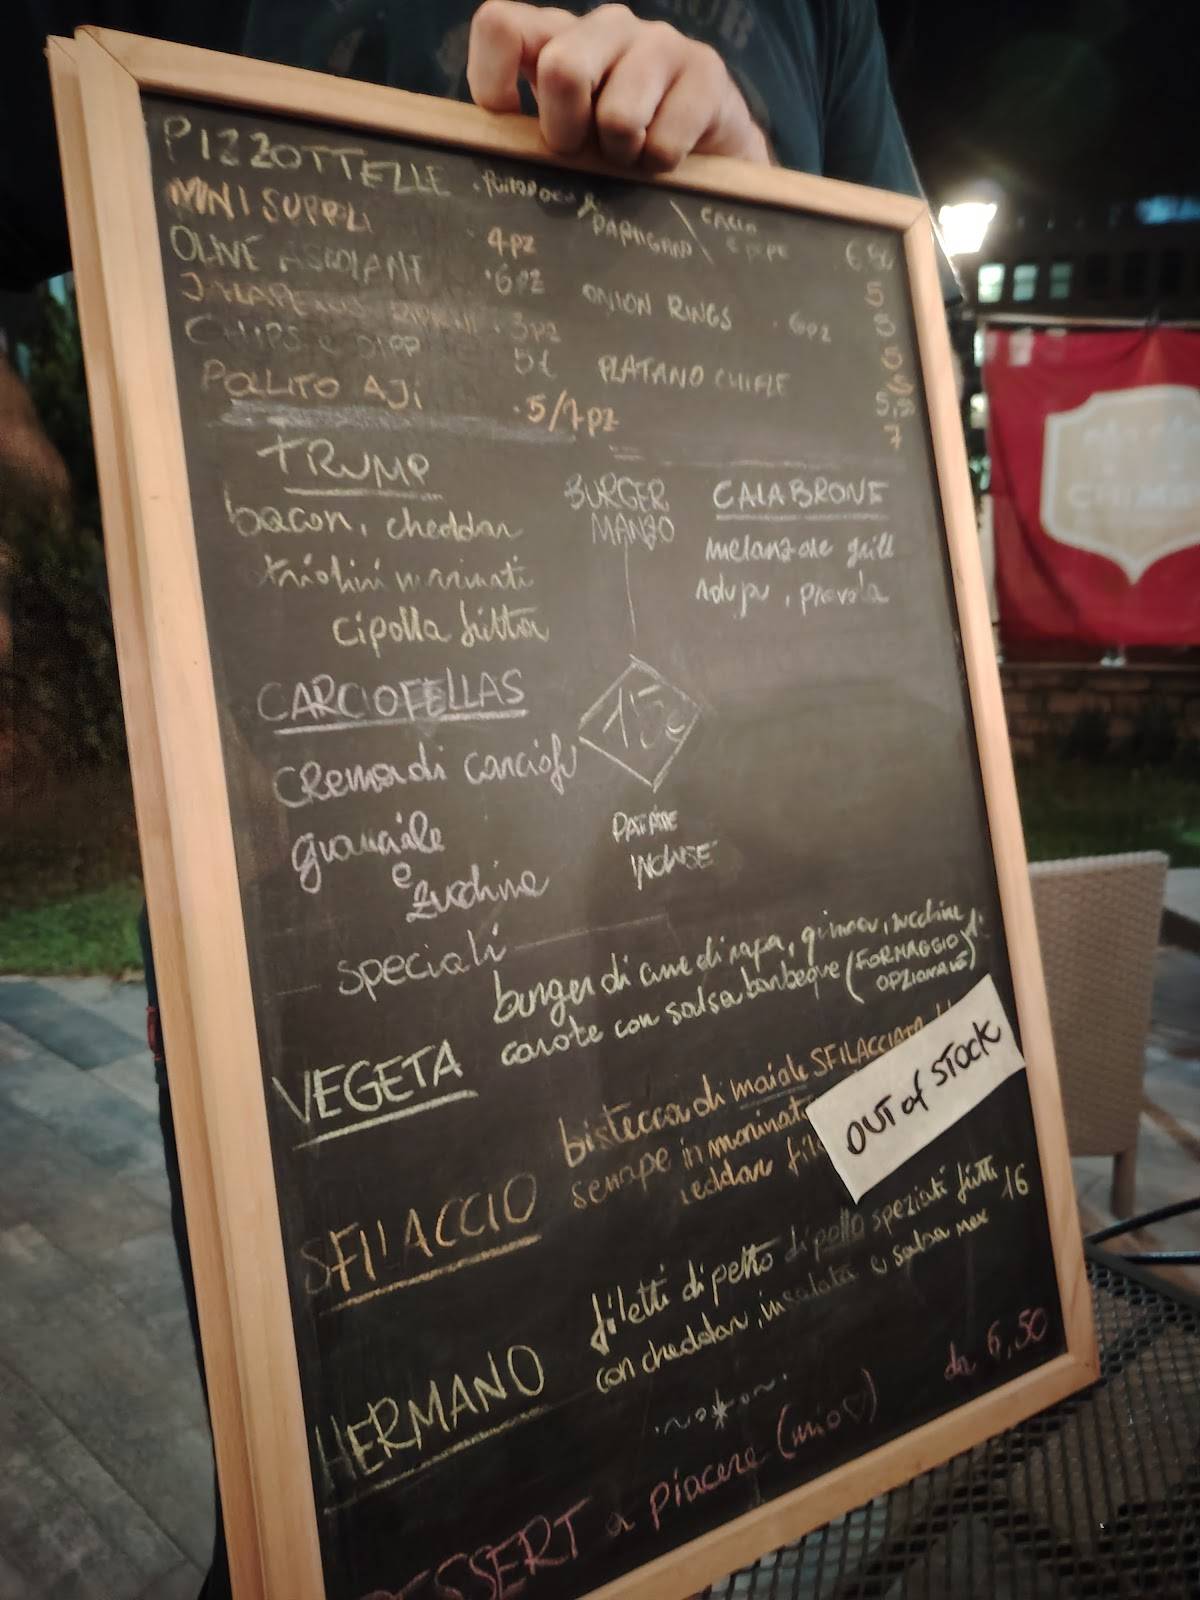 PIZZOTTELLE
PARMIGIANO \ CACIO E PEPE
MINI SUPPLI 4PZ 5
OLIVE ASCOLANE 6PZ ONION RINGS 6PZ 5
JALAPENOS RIPIENI 3PZ 5
CHIPS E DIPP 5€ PLATANO CHIFLE
POLLITO AJI 5/7PZ 5,50 7
TRUMP
bacon, cheddar
marinati
cipolla fritta
BURGER
MANZO
CALABRONE
melanzane grill
nduja, provola
CARCIOFELLAS
crema di carciofi
guanciale
e
zucchine
15€
PATATE
INCLUSE
Speciali
VEGETA
burger di cime di rapa, zucchine
carote con salsa barbeque (FORMAGGIO
OPZIONALE)
SFILACCIO
bistecca di maiale SFILACCIATA
senape in
OUT of STOCK
HERMANO
filetti di petto di pollo speziati fritti
con cheddar, insalata e salsa mex 16
DESSERT a piacere (mio♡) da 6,50